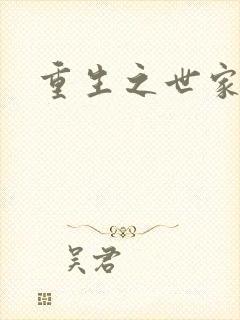 重生之世家
吴君